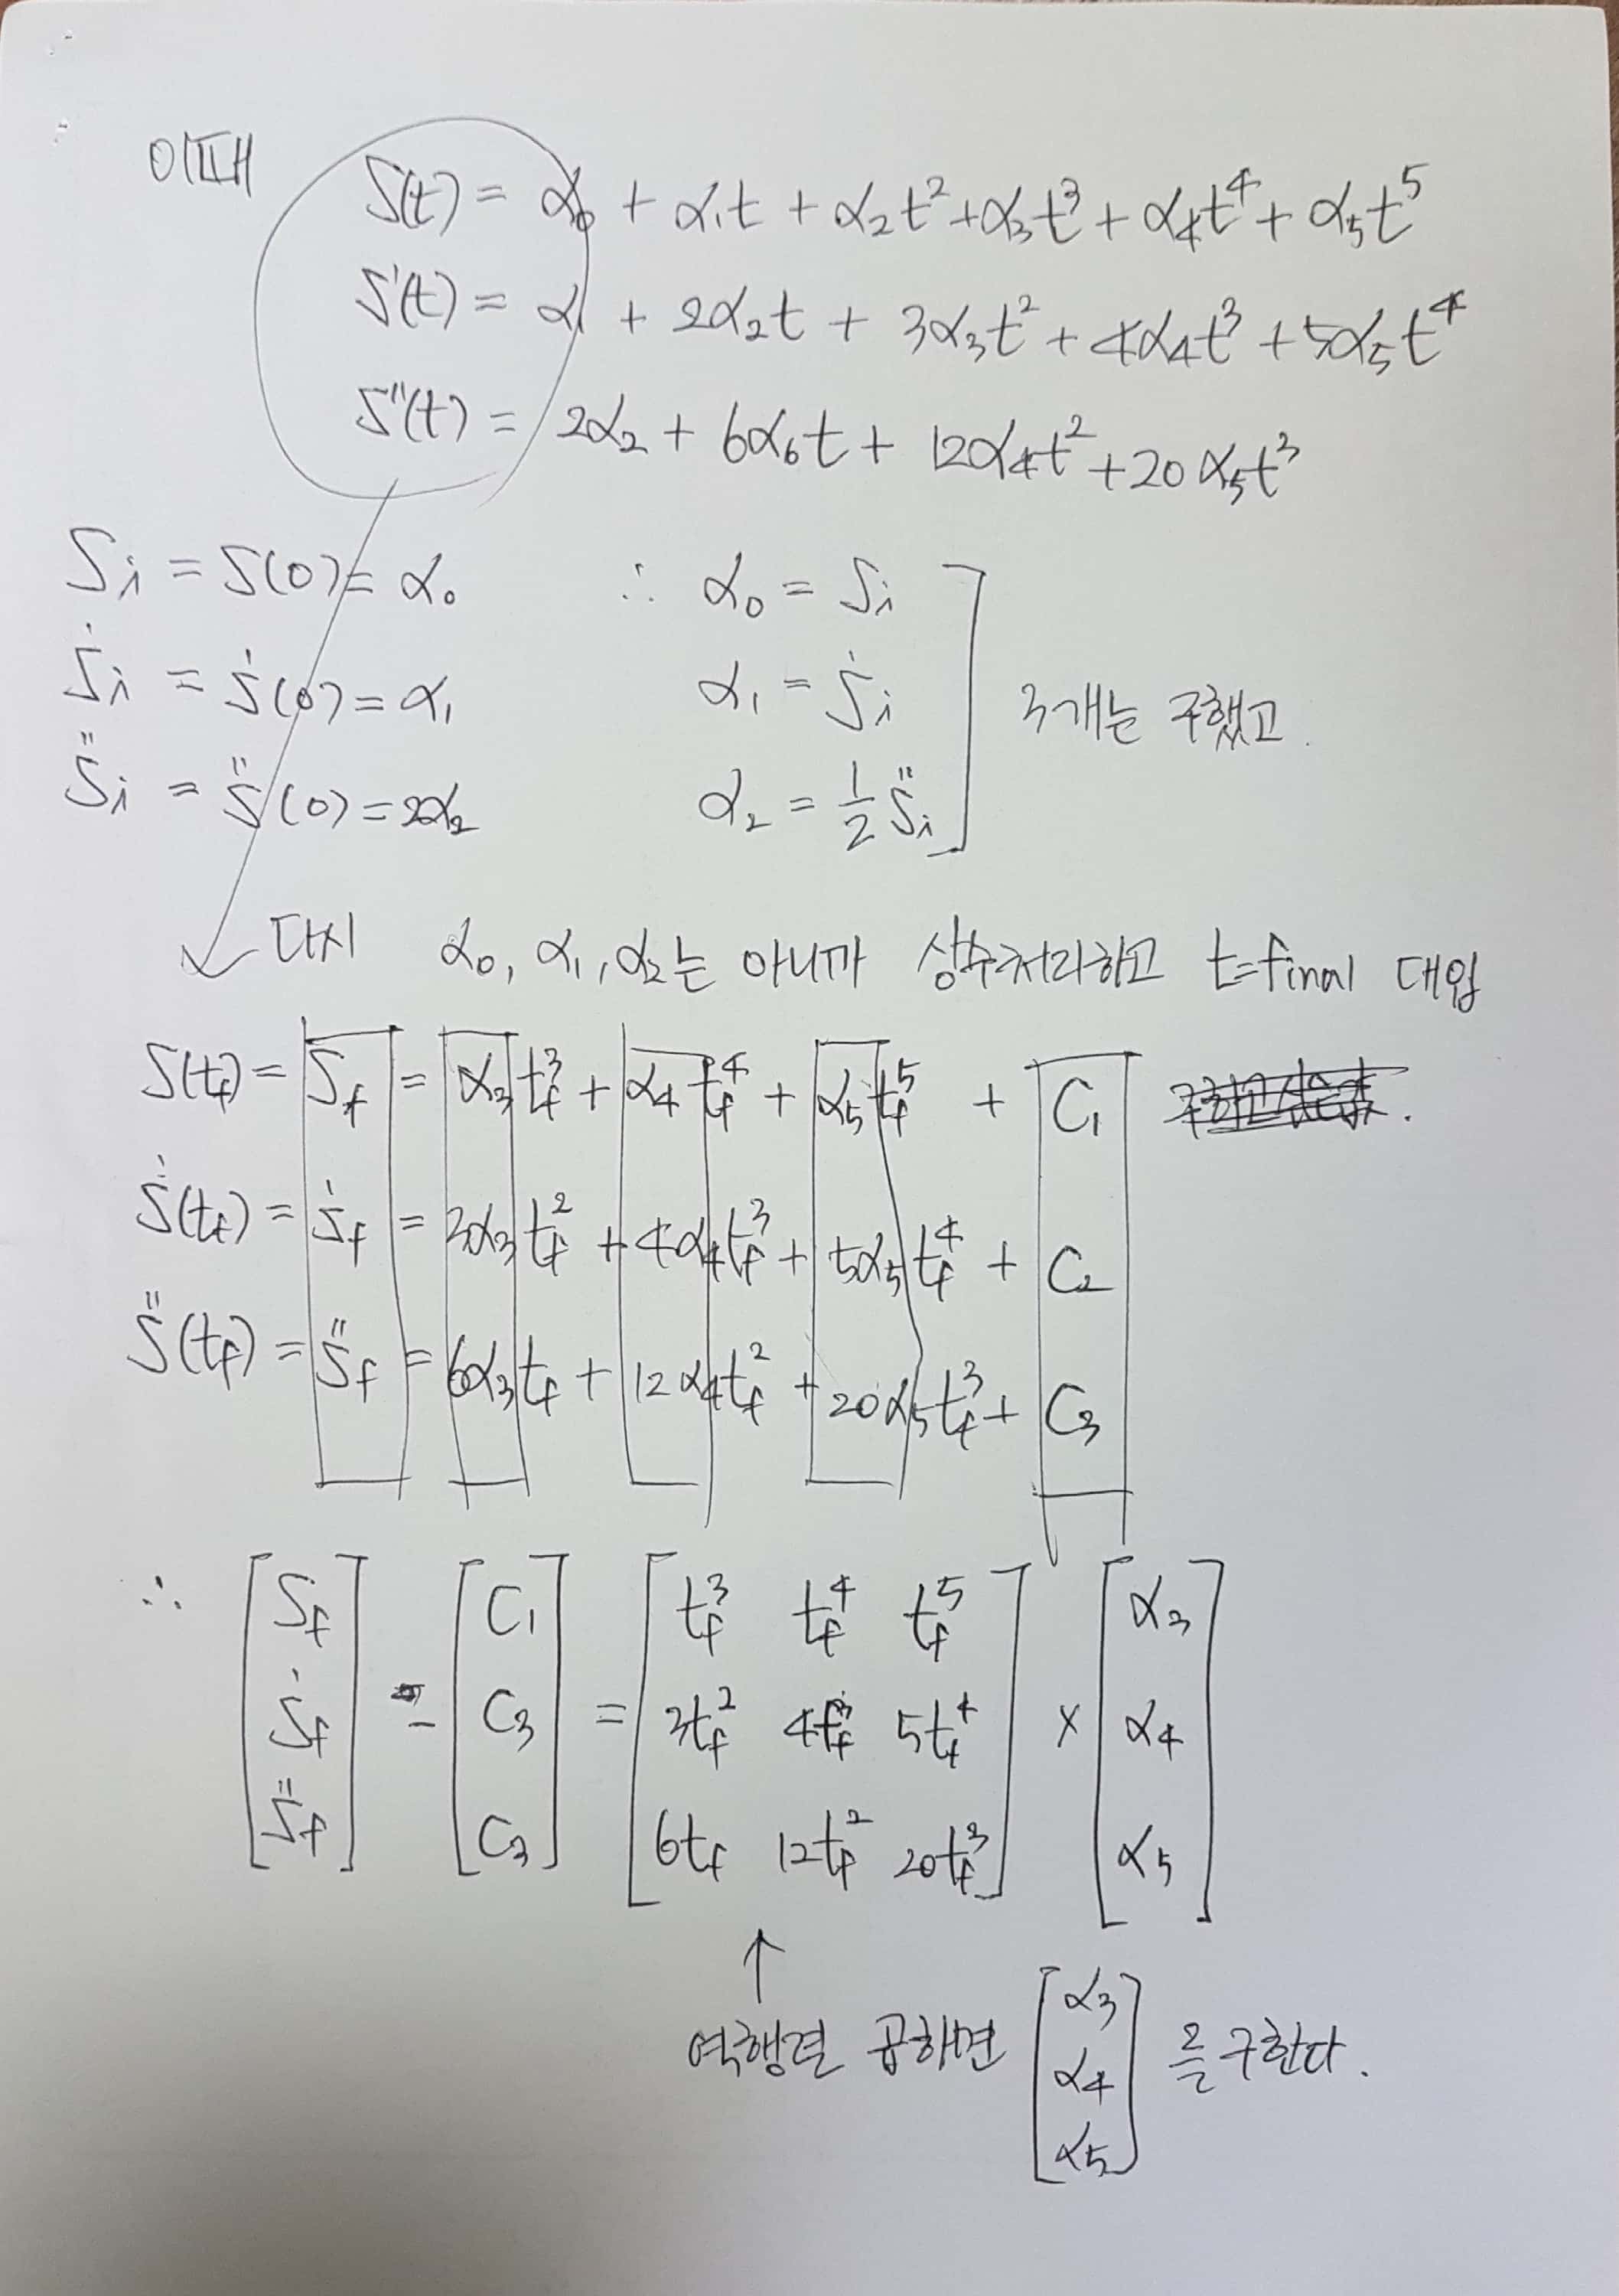 이때 S(t) = α₀ + α₁t + α₂t² + α₃t³ + α₄t⁴ + α₅t⁵
Ṡ(t) = α₁ + 2α₂t + 3α₃t² + 4α₄t³ + 5α₅t⁴
S̈(t) = 2α₂ + 6α₆t + 12α₄t² + 20α₅t³
Sᵢ = S(0) = α₀ ∴ α₀ = Sᵢ
Ṡᵢ = Ṡ(0) = α₁ α₁ = Ṡᵢ 3개는 구했고.
S̈ᵢ = S̈(0) = 2α₂ α₂ = 1/2 S̈ᵢ
다시 α₀, α₁, α₂는 아니까 상수처리하고 t=final 대입
S(t_f) = S_f = α₃t_f³ + α₄t_f⁴ + α₅t_f⁵ + C₁
Ṡ(t_f) = Ṡ_f = 3α₃t_f² + 4α₄t_f³ + 5α₅t_f⁴ + C₂
S̈(t_f) = S̈_f = 6α₃t_f + 12α₄t_f² + 20α₅t_f³ + C₃
∴ [S_f] [C₁] [t_f³ t_f⁴ t_f⁵] [α₃]
[Ṡ_f] - [C₃] = [3t_f² 4t_f³ 5t_f⁴] × [α₄]
[S̈_f] [C₃] [6t_f 12t_f² 20t_f³] [α₅]
↑
역행렬 곱하면 [α₃ α₄ α₅] 를 구한다.